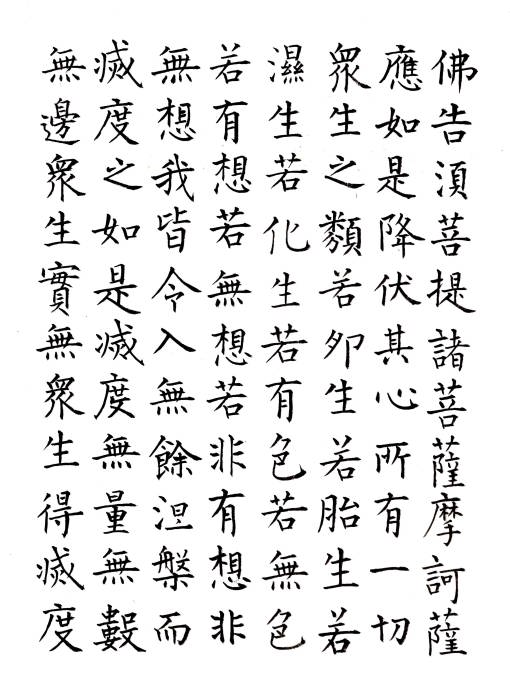 佛告須菩提諸菩薩摩訶薩
應如是降伏其心所有一切
眾生之類若卵生若胎生若
濕生若化生若有色若無色
若有想若無想若非有想非
無想我皆令入無餘涅槃而
滅度之如是滅度無量無數
無邊眾生實無眾生得滅度